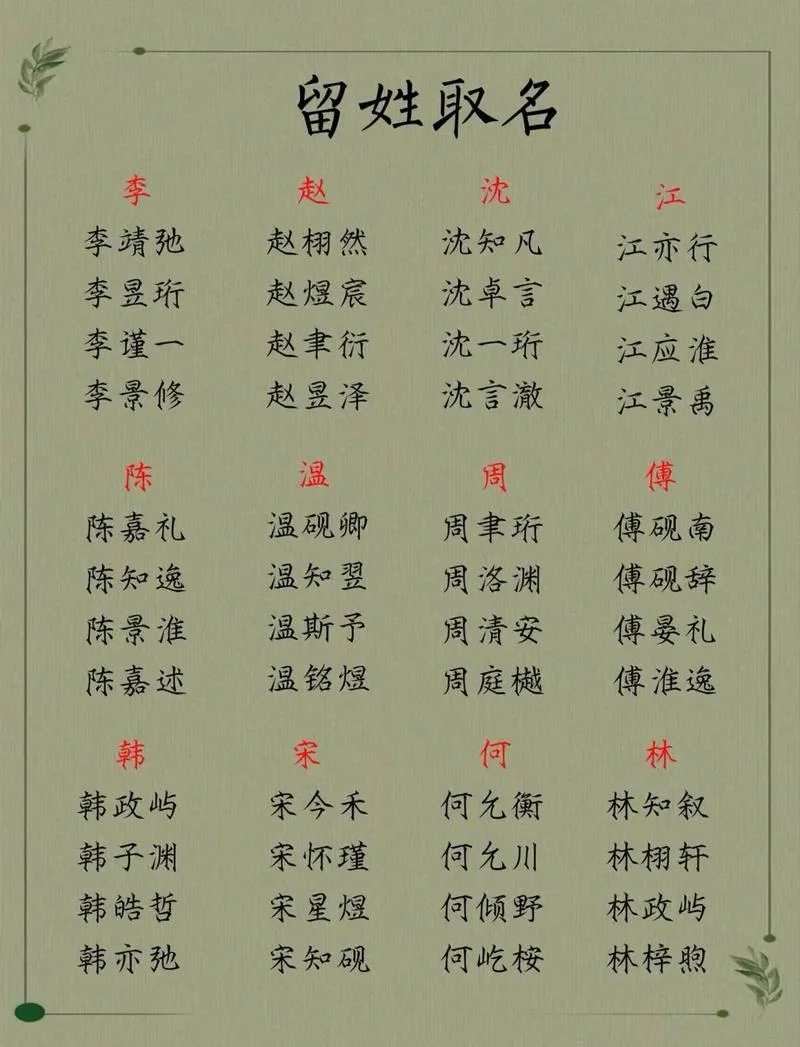 留姓取名
李 赵 沈 江
李靖弛 赵栩然 沈知凡 江亦行
李昱珩 赵煜宸 沈卓言 江遇白
李谨一 赵聿衍 沈一珩 江应淮
李景修 赵昱泽 沈言澈 江景禹
陈 温 周 傅
陈嘉礼 温砚卿 周聿珩 傅砚南
陈知逸 温知翌 周洛渊 傅砚辞
陈景淮 温斯予 周清安 傅晏礼
陈嘉述 温铭煜 周庭樾 傅淮逸
韩 宋 何 林
韩政屿 宋今禾 何允衡 林知叙
韩子渊 宋怀瑾 何允川 林栩轩
韩皓哲 宋星煜 何倾野 林政屿
韩亦弛 宋知砚 何屹桉 林梓煦